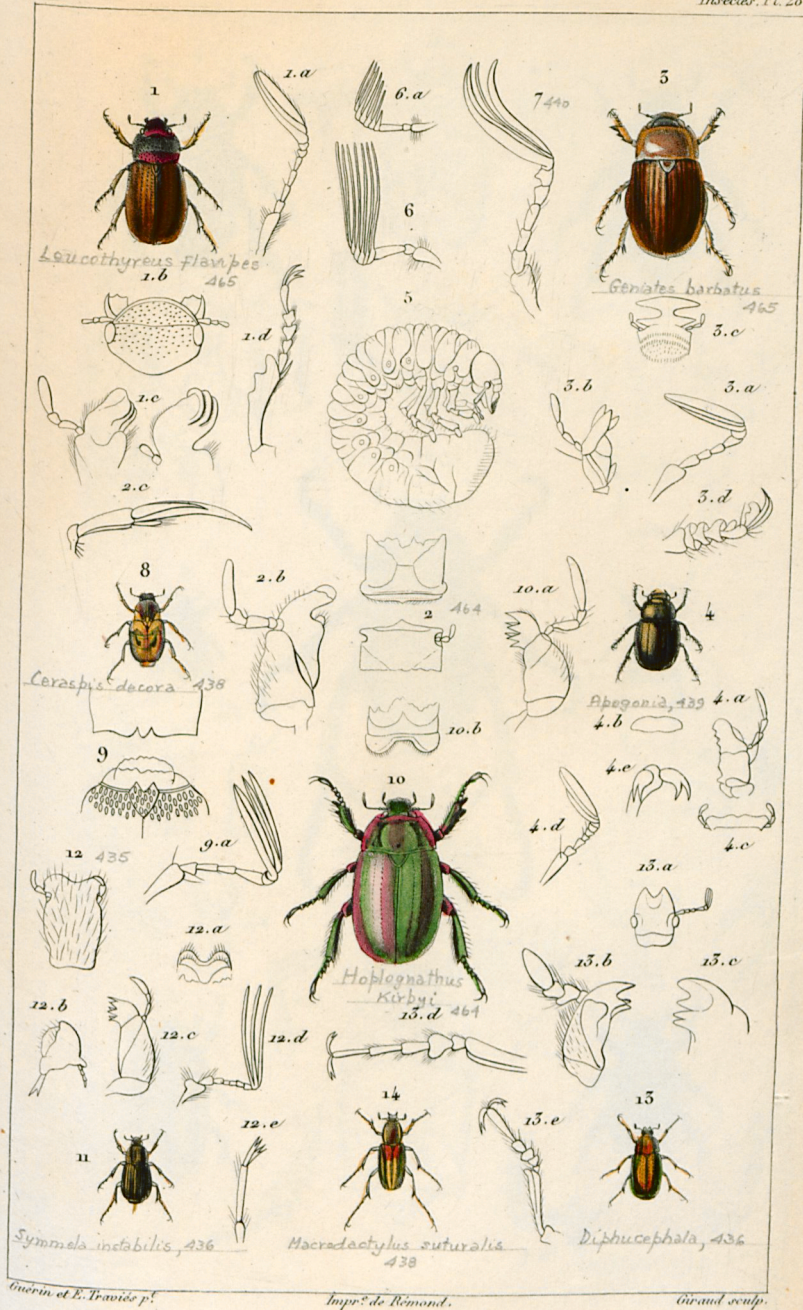 Insectes. Pl. 26
1
1.a
6.a
7 440
3
6
Leucothyreus flavipes
465
Geniates barbatus
465
1.b
1.d
5
3.c
1.c
3.b
3.a
2.c
3.d
8
2.b
2 464
10.a
4
Ceraspis decora 438
Apogonia, 439
10.b
4.b
4.a
9
4.e
10
4.d
4.c
12 435
9.a
13.a
12.a
Hoplognathus
Kirbyi
464
13.b
13.c
12.b
12.c
12.d
13.d
14
13
11
12.e
13.e
Symmela instabilis, 436
Macrodactylus suturalis
438
Diphucephala, 436
Guérin et E. Traviés pt.
Impre. de Rémond.
Giraud sculp.